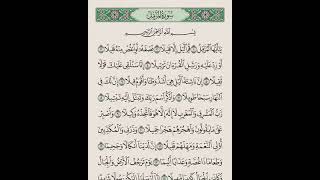 سُورَةُ المُزَّمِّل
بِسْمِ اللَّهِ الرَّحْمَٰنِ الرَّحِيمِ
يَٰٓأَيُّهَا الْمُزَّمِّلُ ١ قُمِ الَّيْلَ إِلَّا قَلِيلًا ٢ نِّصْفَهُۥٓ أَوِ انقُصْ مِنْهُ قَلِيلًا ٣
أَوْ زِدْ عَلَيْهِ وَرَتِّلِ الْقُرْءَانَ تَرْتِيلًا ٤ إِنَّا سَنُلْقِي عَلَيْكَ قَوْلًا
ثَقِيلًا ٥ إِنَّ نَاشِئَةَ الَّيْلِ هِيَ أَشَدُّ وَطْـًٔا وَأَقْوَمُ قِيلًا ٦ إِنَّ لَكَ فِي
النَّهَارِ سَبْحًا طَوِيلًا ٧ وَاذْكُرِ اسْمَ رَبِّكَ وَتَبَتَّلْ إِلَيْهِ تَبْتِيلًا ٨
رَّبُّ الْمَشْرِقِ وَالْمَغْرِبِ لَآ إِلَٰهَ إِلَّا هُوَ فَاتَّخِذْهُ وَكِيلًا ٩ وَاصْبِرْ
عَلَىٰ مَا يَقُولُونَ وَاهْجُرْهُمْ هَجْرًا جَمِيلًا ١٠ وَذَرْنِي وَالْمُكَذِّبِينَ
أُو۟لِي النَّعْمَةِ وَمَهِّلْهُمْ قَلِيلًا ١١ إِنَّ لَدَيْنَآ أَنكَالًا وَجَحِيمًا ١٢
وَطَعَامًا ذَا غُصَّةٍ وَعَذَابًا أَلِيمًا ١٣ يَوْمَ تَرْجُفُ الْأَرْضُ وَالْجِبَالُ
وَكَانَتِ الْجِبَالُ كَثِيبًا مَّهِيلًا ١٤ إِنَّآ أَرْسَلْنَآ إِلَيْكُمْ رَسُولًا شَٰهِدًا